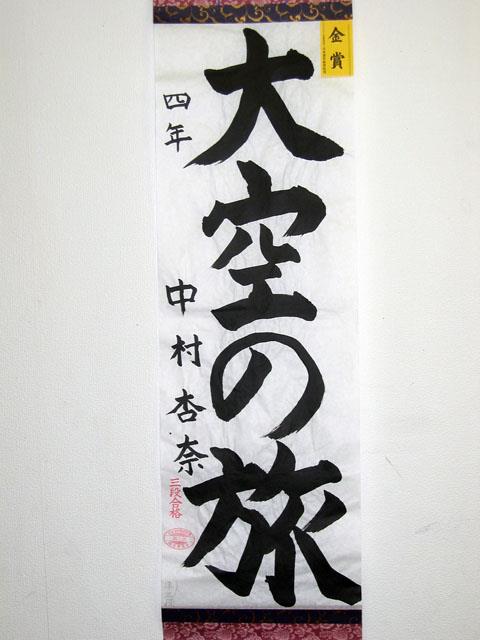 金賞
大空の旅
四年 中村杏奈
三段合格